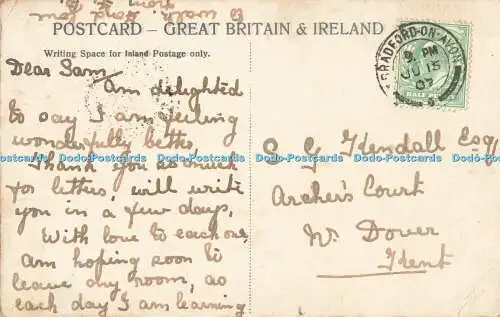 to walk, Hope your
POSTCARD – GREAT BRITAIN & IRELAND
Writing Space for Island Postage only.
Dear Sam
Am delighted
to say I am feeling
wonderfully better,
Thank you so much
for letters, will write
you in a few days,
With love to each one,
am hoping soon to
leave my room, as
each day I am learning
BRADFORD-ON-AVON
9 PM
JU 15
07
HALF PENNY
S G Kendall Esq
Archer's Court
Nr. Dover
Kent
Dodo-Postcards Dodo-Postcards Dodo-Postcards Dodo-Postcards Dodo-Postcards